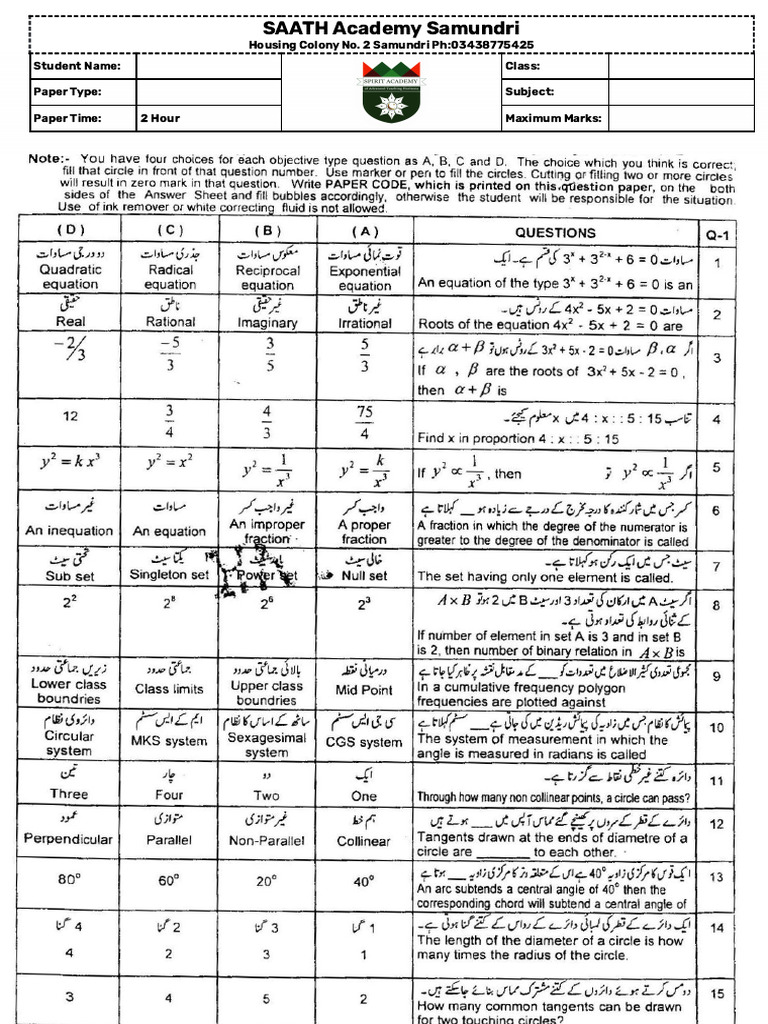 SAATH Academy Samundri
Housing Colony No. 2 Samundri Ph:03438775425
Student Name:
Class:
Paper Type:
Subject:
Paper Time:
2 Hour
Maximum Marks:
SPIRIT ACADEMY
Note:- You have four choices for each objective type question as A, B, C and D. The choice which you think is correct,
fill that circle in front of that question number. Use marker or pen to fill the circles. Cutting or filling two or more circles
will result in zero mark in that question. Write PAPER CODE, which is printed on this question paper, on the both
sides of the Answer Sheet and fill bubbles accordingly, otherwise the student will be responsible for the situation.
Use of ink remover or white correcting fluid is not allowed.
( D ) ( C ) ( B ) ( A ) QUESTIONS Q-1
دو درجی مساوات جذری مساوات معکوس مساوات قوت نمائی مساوات مساوات 3ˣ + 3²⁻ˣ + 6 = 0 کی قسم ہے۔ ایک 1
Quadratic equation Radical equation Reciprocal equation Exponential equation An equation of the type 3ˣ + 3²⁻ˣ + 6 = 0 is an
حقیقی ناطق غیر حقیقی غیر ناطق مساوات 4x² - 5x + 2 = 0 کے روٹس ہیں۔ 2
Real Rational Imaginary Irrational Roots of the equation 4x² - 5x + 2 = 0 are
-2/3 -5/3 3/5 5/3 اگر α , β مساوات 3x² + 5x - 2 = 0 کے روٹس ہوں تو α + β برابر ہے 3
If α , β are the roots of 3x² + 5x - 2 = 0 ,
then α + β is
12 3/4 4/3 75/4 تناسب 4 : x : : 5 : 15 میں x معلوم کیجئے۔ 4
Find x in proportion 4 : x : : 5 : 15
y² = k x³ y² = x² y² = 1/x³ y² = k/x³ If y² ∝ 1/x³ , then اگر y² ∝ 1/x³ تو 5
غیر مساوات مساوات غیر واجب کسر واجب کسر کسر جس میں شمار کنندہ کا درجہ مخرج کے درجے سے زیادہ ہو __ کہلاتا ہے 6
An inequation An equation An improper fraction A proper fraction A fraction in which the degree of the numerator is
greater to the degree of the denominator is called
تحتی سیٹ یکتا سیٹ سیٹ خالی سیٹ سیٹ جس میں ایک رکن ہو کہلاتا ہے۔ 7
Sub set Singleton set Power set Null set The set having only one element is called.
2² 2⁸ 2⁶ 2³ اگر سیٹ A میں ارکان کی تعداد 3 اور سیٹ B میں 2 ہو تو A × B 8
کے ثنائی روابط کی تعداد ہوتی ہے۔
If number of element in set A is 3 and in set B
is 2, then number of binary relation in A × B is
زیریں جماعتی حدود جماعتی حدود بالائی جماعتی حدود درمیانی نقطہ مجموعی تعددی کثیر الاضلاع میں تعددات کو __ کے مد مقابل نقشہ پر ظاہر کیا جاتا ہے 9
Lower class boundries Class limits Upper class boundries Mid Point In a cumulative frequency polygon
frequencies are plotted against
دائروی نظام ایم کے ایس سسٹم ساٹھ کے اساس کا نظام سی جی ایس سسٹم پیمائش کا نظام جس میں زاویہ کی پیمائش ریڈین میں کی جاتی ہے __ سسٹم کہلاتا ہے 10
Circular system MKS system Sexagesimal system CGS system The system of measurement in which the
angle is measured in radians is called
تین چار دو ایک دائرہ کتنے غیر خطی نقاط سے گزرتا ہے۔ 11
Three Four Two One Through how many non collinear points, a circle can pass?
عمود متوازی غیر متوازی ہم خط دائرے کے قطر کے سروں پر کھینچے گئے مماس آپس میں __ ہوتے ہیں 12
Perpendicular Parallel Non-Parallel Collinear Tangents drawn at the ends of diametre of a
circle are ________ to each other.
80° 60° 20° 40° ایک قوس کا مرکزی زاویہ 40° ہے اس کے متعلقہ وتر کا مرکزی زاویہ __ ہوتا ہے 13
An arc subtends a central angle of 40° then the
corresponding chord will subtend a central angle of
4 گنا 2 گنا 3 گنا 1 گنا ایک دائرے کے قطر کی لمبائی دائرے کے رداس کے کتنے گنا ہوتی ہے۔ 14
4 2 3 1 The length of the diameter of a circle is how
many times the radius of the circle.
3 4 5 2 دو مس کرتے ہوئے دائروں کے کتنے مشترک مماس بنائے جاسکتے ہیں۔ 15
How many common tangents can be drawn
for two touching circles?